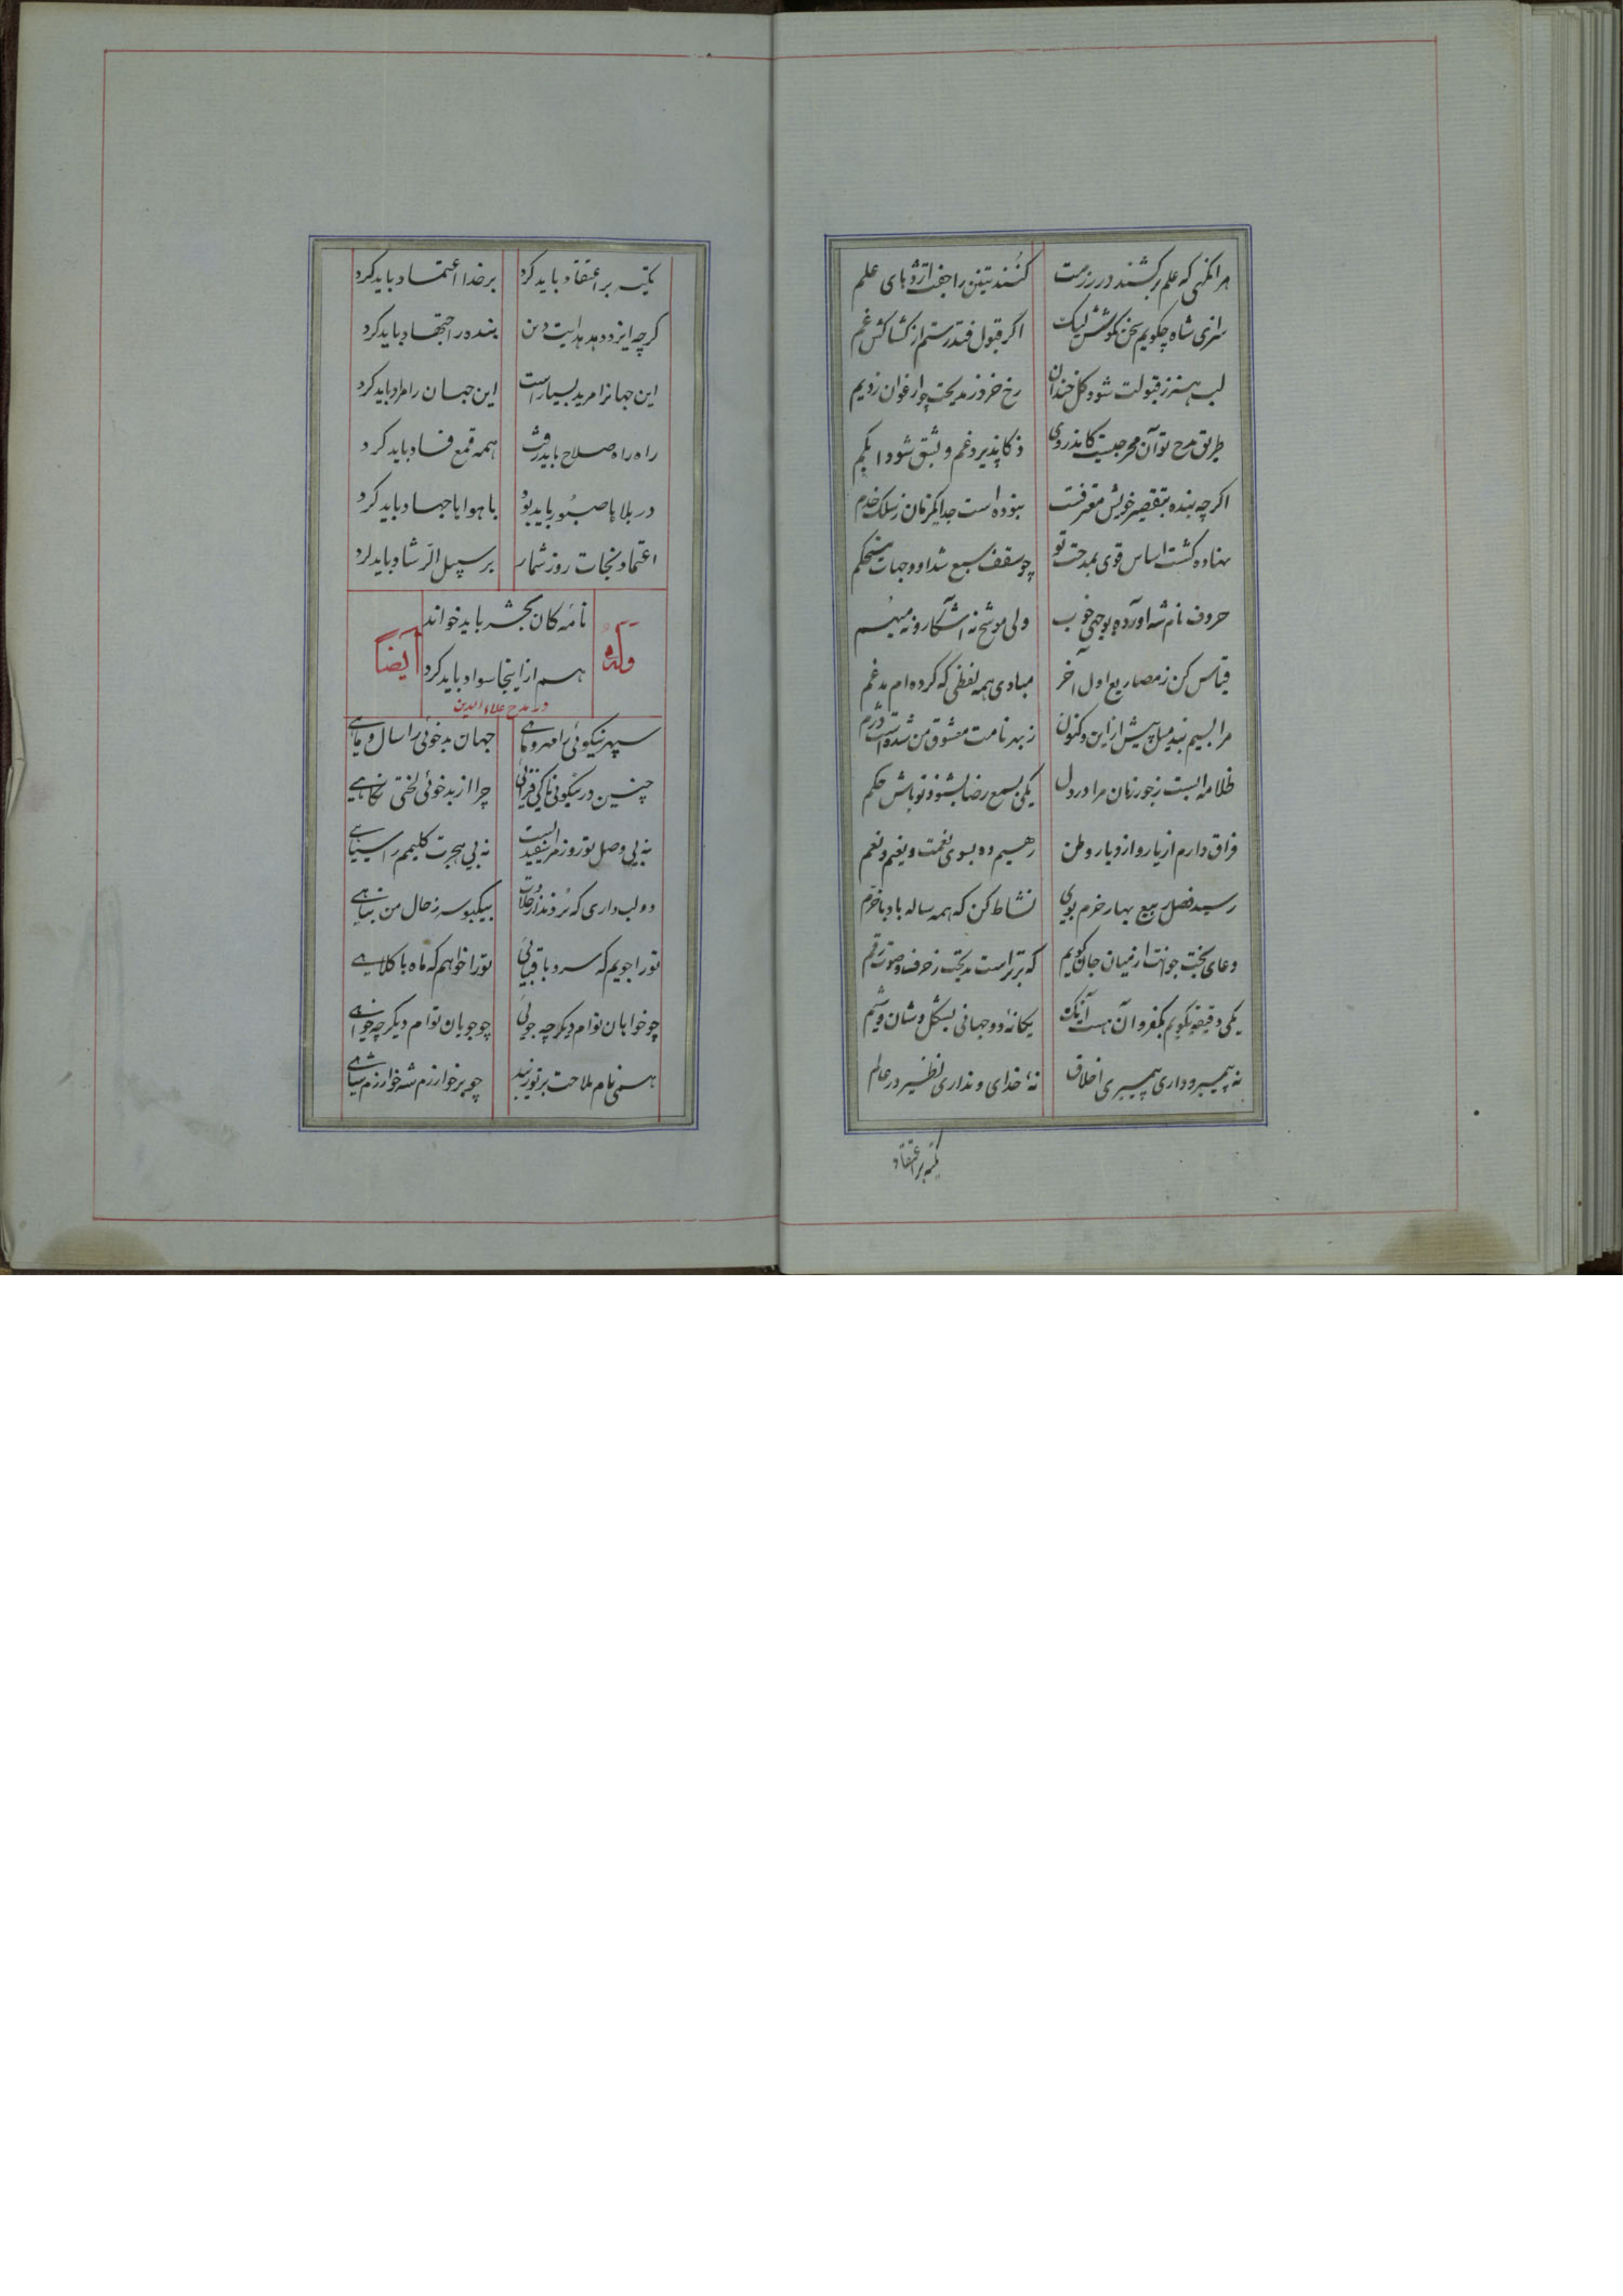 هرانگهی که علم برکشند در رزمت کنند تنین را جفت اژدهای علم
سزای شاه چگویم سخن بکوشش لیک اگر قبول فتد رستم از کشاکش غم
لب هنر ز قبولت شود گل خندان رخ خرد ز مدیحت چو ارغوان و دیم
طریق مدح تو آن بحر کاندروی ذکا پذیرد غم و نطق شود ابکم
اگرچه بنده بتقصیر خویش معترفست نبوده است جدا یکزمان ز سلک خدم
نهاده گشت اساس قوی بمدحت تو چو سقف سبع شداد و جهات مستحکم
حروف نام شه آورده بوجهی خوب ولی موشح نه آشکار و نه مبهم
قیاس کن ز مصاریع اول آخر مبادی همه لفظی که کرده ام مدغم
مرا بسیم نبد میل پیش از این و کنون ز بهر نامت معشوق من شده است درم
ظلامه ایست ز جور زمان مرا در دل یکی بسمع رضا بشنو و تو باش حکم
فراق دارم از یار و از دیار و وطن رهیم ده بسوی نعمت و نعیم و نعم
رسید فصل ربیع بهار خرم بوی نشاط کن که همه ساله باد با خرم
دعای بخت جوانت از میان جان گویم که برتر است مدیحت ز حرف و صوت و رقم
یکی دقیقه بگویم بکفر و آن هست آنک یگانه دو جهانی بشکل و شان و شیم
نه پیمبر و داری پیمبری اخلاق نه خدای و نداری نظیر در عالم
تکیه بر اعتقاد
تکیه بر اعتقاد باید کرد بر خدا اعتماد باید کرد
گرچه ایزد دهد هدایت دین بنده را اجتهاد باید کرد
این جهانرا مرید بسیار است این جهان را مراد باید کرد
راه راه صلاح باید رفت همه قمع فساد باید کرد
در بلا پا صبور باید بود با هوا با جهاد باید کرد
اعتماد نجات روز شمار بر سبیل الرشاد باید کرد
نامه کان بحشر باید خواند
هم از اینجا سواد باید کرد
وله ایضا
در مدح علاء الدین
سپهر نیکوئی را مهر و ماهی جهان بدخوئی را سال و ماهی
چنین در نیکوئی تا کی فزائی چرا از بدخوئی لختی نکاهی
نه بی وصل تو روزم را سپیدیست نه بی هجرت گلیمم را سیاهی
دو لب داری بیکبوسه ز حال من تباهی
تو را جویم که سرو با قبائی تو را خواهم که ماه با کلاهی
چو خواهان توام دیگر چه جوئی چو جویان توام دیگر چه خواهی
همی نام ملاحت بر تو زیبد چو بر خوارزم شه خوارزم شاهی